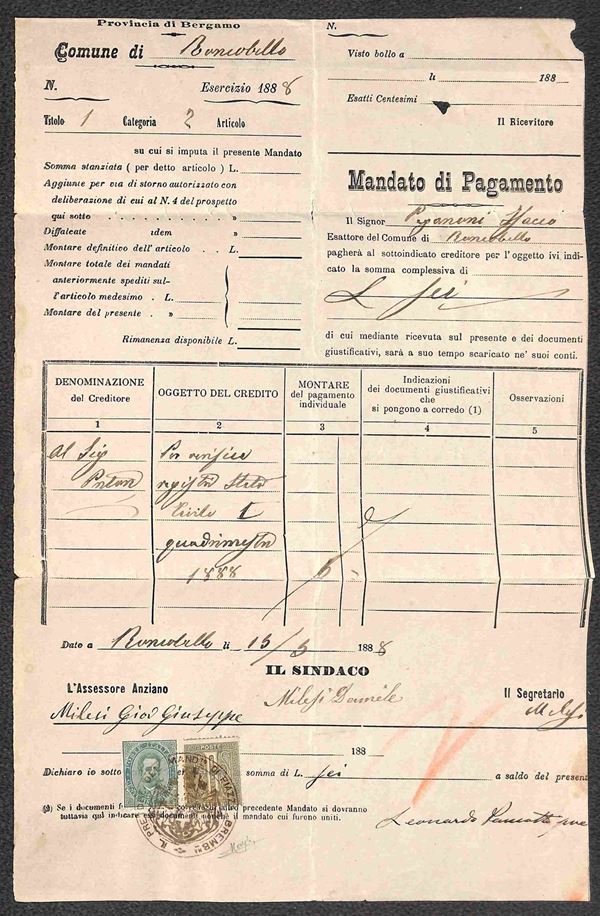 Provincia di Bergamo
Comune di Roncobello
N.
Esercizio 1888
Titolo 1 Categoria 2 Articolo
su cui si imputa il presente Mandato
Somma stanziata ( per detto articolo ) L.
Aggiunte per via di storno autorizzato con
deliberazione di cui al N. 4 del prospetto
qui sotto . . . . . . . . . »
Diffalcate idem »
Montare definitivo dell'articolo . L.
Montare totale dei mandati
anteriormente spediti sul-
l'articolo medesimo . L.
Montare del presente . »
Rimanenza disponibile L.
N.
Visto bollo a
li 188
Esatti Centesimi
Il Ricevitore
Mandato di Pagamento
Il Signor
Esattore del Comune di Roncobello
pagherà al sottoindicato creditore per l'oggetto ivi indi-
cato la somma complessiva di
L Sei
di cui mediante ricevuta sul presente e dei documenti
giustificativi, sarà a suo tempo scaricato ne' suoi conti.
DENOMINAZIONE
del Creditore
OGGETTO DEL CREDITO
MONTARE
del pagamento
individuale
Indicazioni
dei documenti giustificativi
che
si pongono a corredo (1)
Osservazioni
1 2 3 4 5
Al Sig Per verifica
Pretore registri Stato
Civile I
quadrimestre
1888 6 -
Dato a Roncobello li 15/5 1888
IL SINDACO
L'Assessore Anziano
Milesi Daniele
Il Segretario
Milesi Giov Giuseppe
Milesi
188
Dichiaro io sotto
somma di L. Sei a saldo del presen
(2) Se i documenti
precedente Mandato si dovranno
tuttavia qui indicare
documenti nonchè il mandato cui furono uniti.
POSTE
Leonardo